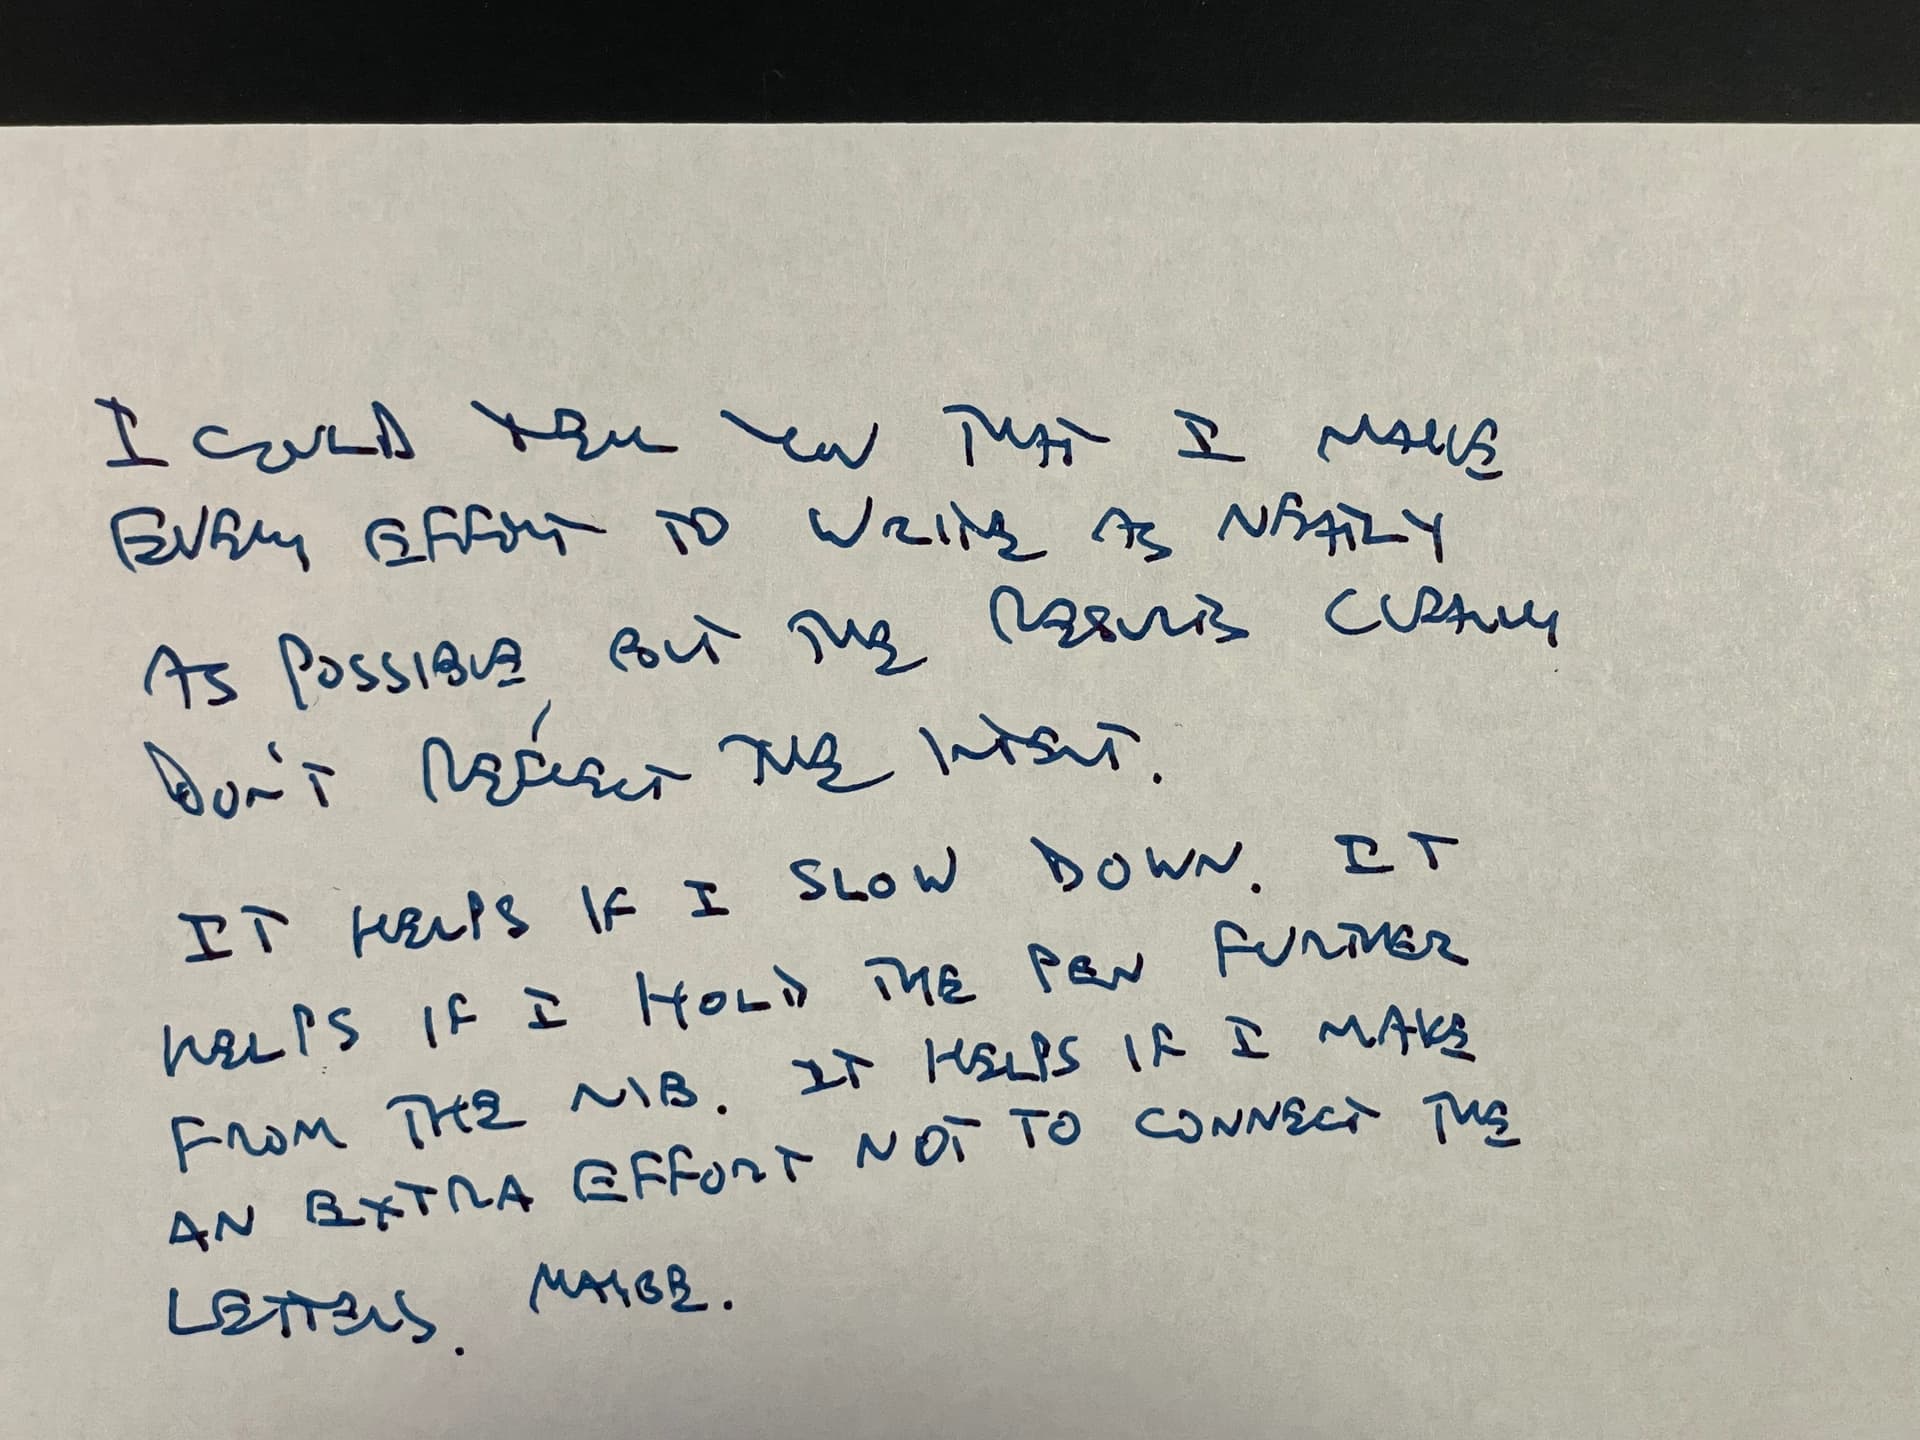 I COULD TELL YOU THAT I MAKE
EVERY EFFORT TO WRITE AS NEATLY
AS POSSIBLE, BUT THE RESULTS CLEARLY
DON'T REFLECT THE INTENT.
IT HELPS IF I SLOW DOWN. IT
HELPS IF I HOLD THE PEN FURTHER
FROM THE NIB. IT HELPS IF I MAKE
AN EXTRA EFFORT NOT TO CONNECT THE
LETTERS. MAYBE.